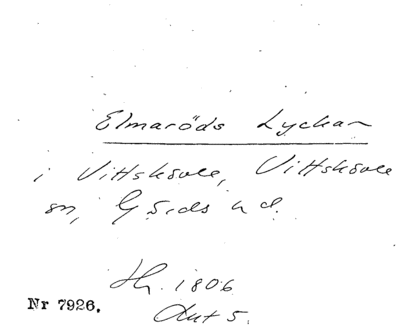 Elmaröds Lyckan
i Vittskövle, Vittskövle
sn, Gärds hd.
Hr. 1806
Akt 5.
Nr 7926.